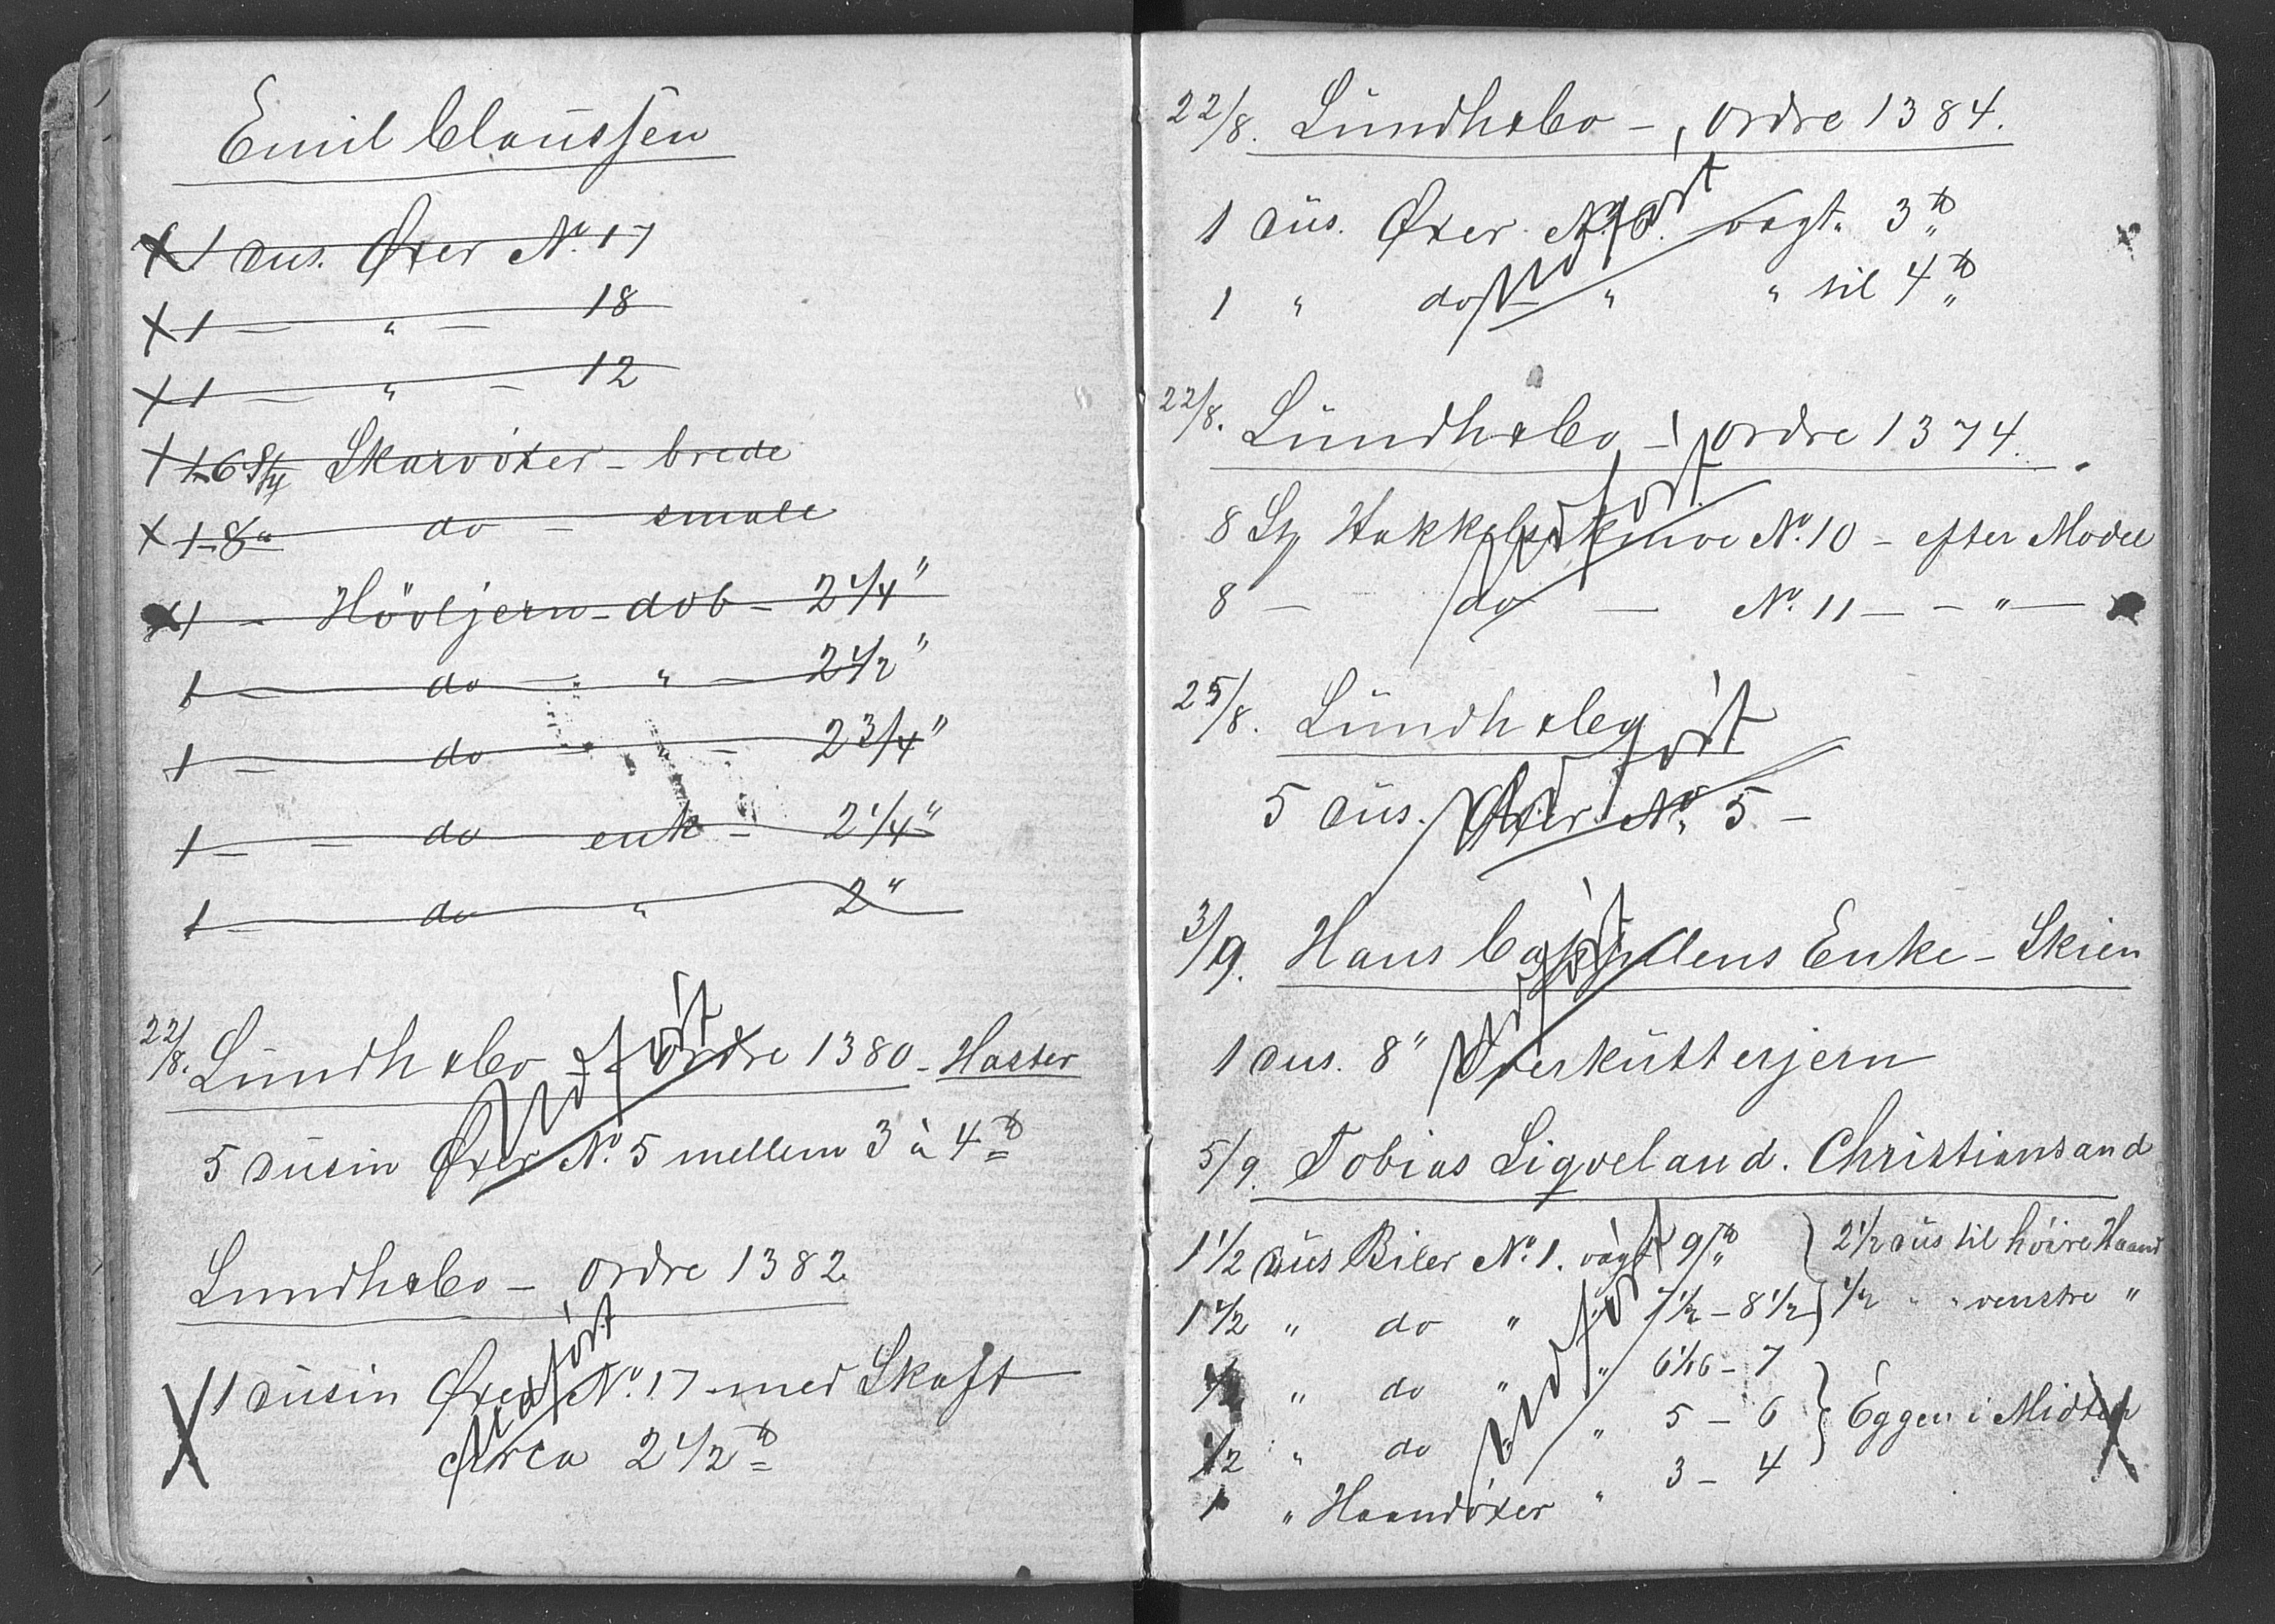 Emil Claussen
1 dus. Øxer No. 17
1 — " — 18
1 — " — 12
1-6 Sty Skarvöxer - brede
1-8 " do - smale
1 - Hövljern - dob - 2 1/4"
1 — do — " — 2 1/2"
1 — do — " — 2 3/4"
1 — do enk - 2 1/4"
1 — do " 2"
22/8. Lündh & Co - ordre 1380 - Haster
Udfört
5 düsin Øxer No. 5 mellem 3 à 4 ℔
Lundh & Co - ordre 1382
Udfört
1 düsin Øxer No. 17 med Skaft
Circa 2 1/2 ℔
22/8. Lündh & Co - ordre 1384.
Udfört
1 düs. Øxer No. vægt. 3 ℔
1 " do — " " til 4 ℔
22/8. Lündh & Co - ordre 1374.
Udfört
8 Sty Hakkelsknive No. 10 - efter Model
8 — do — No. 11 — - " —
25/8. Lündh & Co
Udfört
5 düs. Øxer No. 5 -
3/9. Hans Cappelens Enke - Skien
Udfört
1 dus. 8" Øxerkütterjern
5/9. Tobias Ligveland. Christiansand
1 1/2 düs Biler No. 1. vægt 9 ℔ } 2 1/2 düs til höire Haand
1 1/2 " do " " 7 1/2 - 8 1/2 } 1/2 " " venstre "
Udfört
1/2 " do " " 6 1/16 - 7
1/2 " do " " 5 - 6 } Eggen i Midten
1 " Haandöxer " 3 - 4